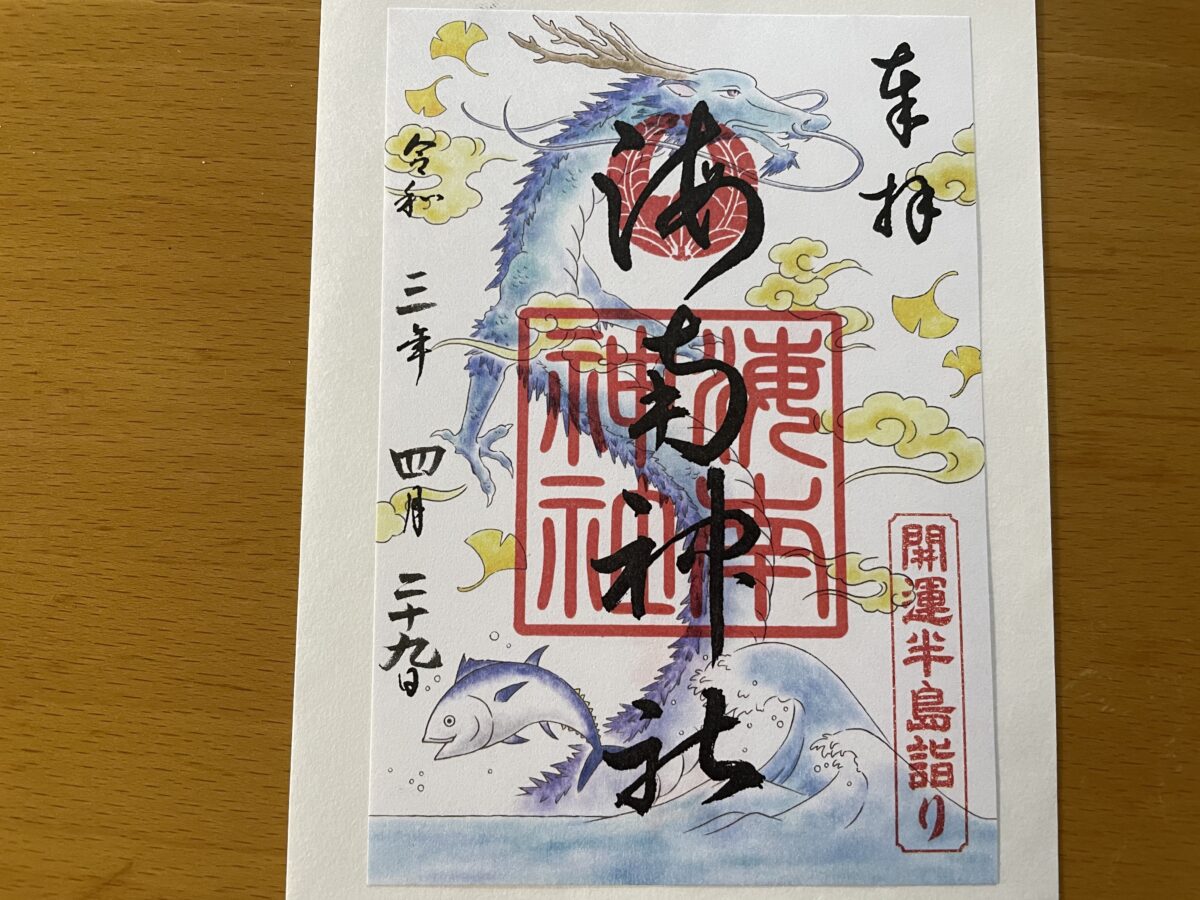 奉拝
海南神社
海南
神社
開運半島詣り
令和三年四月二十九日